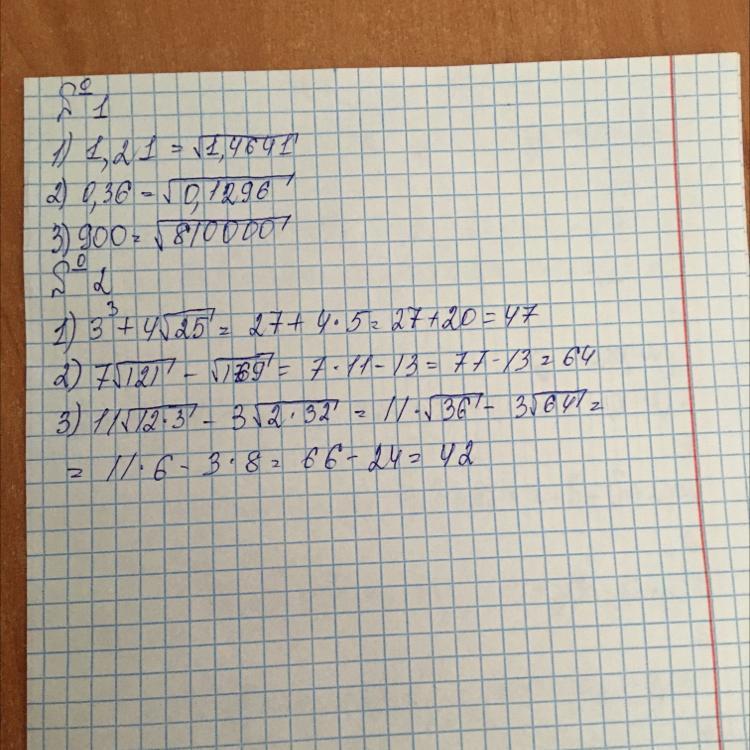 № 1
1) 1,21 = √1,4641
2) 0,36 = √0,1296
3) 900 = √810000
№ 2
1) 3³ + 4√25 = 27 + 4·5 = 27 + 20 = 47
2) 7√121 - √169 = 7·11 - 13 = 77 - 13 = 64
3) 11√12·3 - 3√2·32 = 11·√36 - 3√64 =
= 11·6 - 3·8 = 66 - 24 = 42